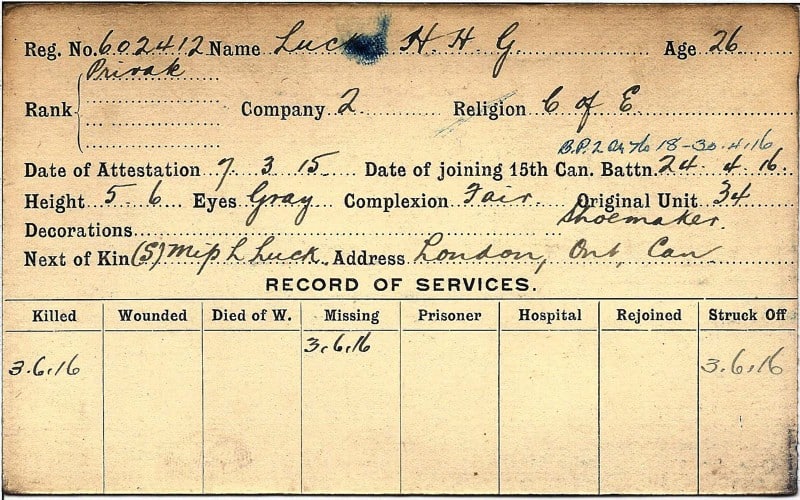 Reg. No. 602412 Name Luck H H G. Age 26
Private
Rank Company 2 Religion C of E.
B.P.2 18-30.4.16
Date of Attestation 9 3 15 Date of joining 15th Can. Battn. 24 4 16
Height 5 6 Eyes Gray Complexion Fair. Original Unit 34
Shoemaker.
Decorations
Next of Kin (S) Miss L Luck. Address London, Ont, Can
RECORD OF SERVICES.
Killed Wounded Died of W. Missing Prisoner Hospital Rejoined Struck Off
3.6.16
3.6.16 3.6.16